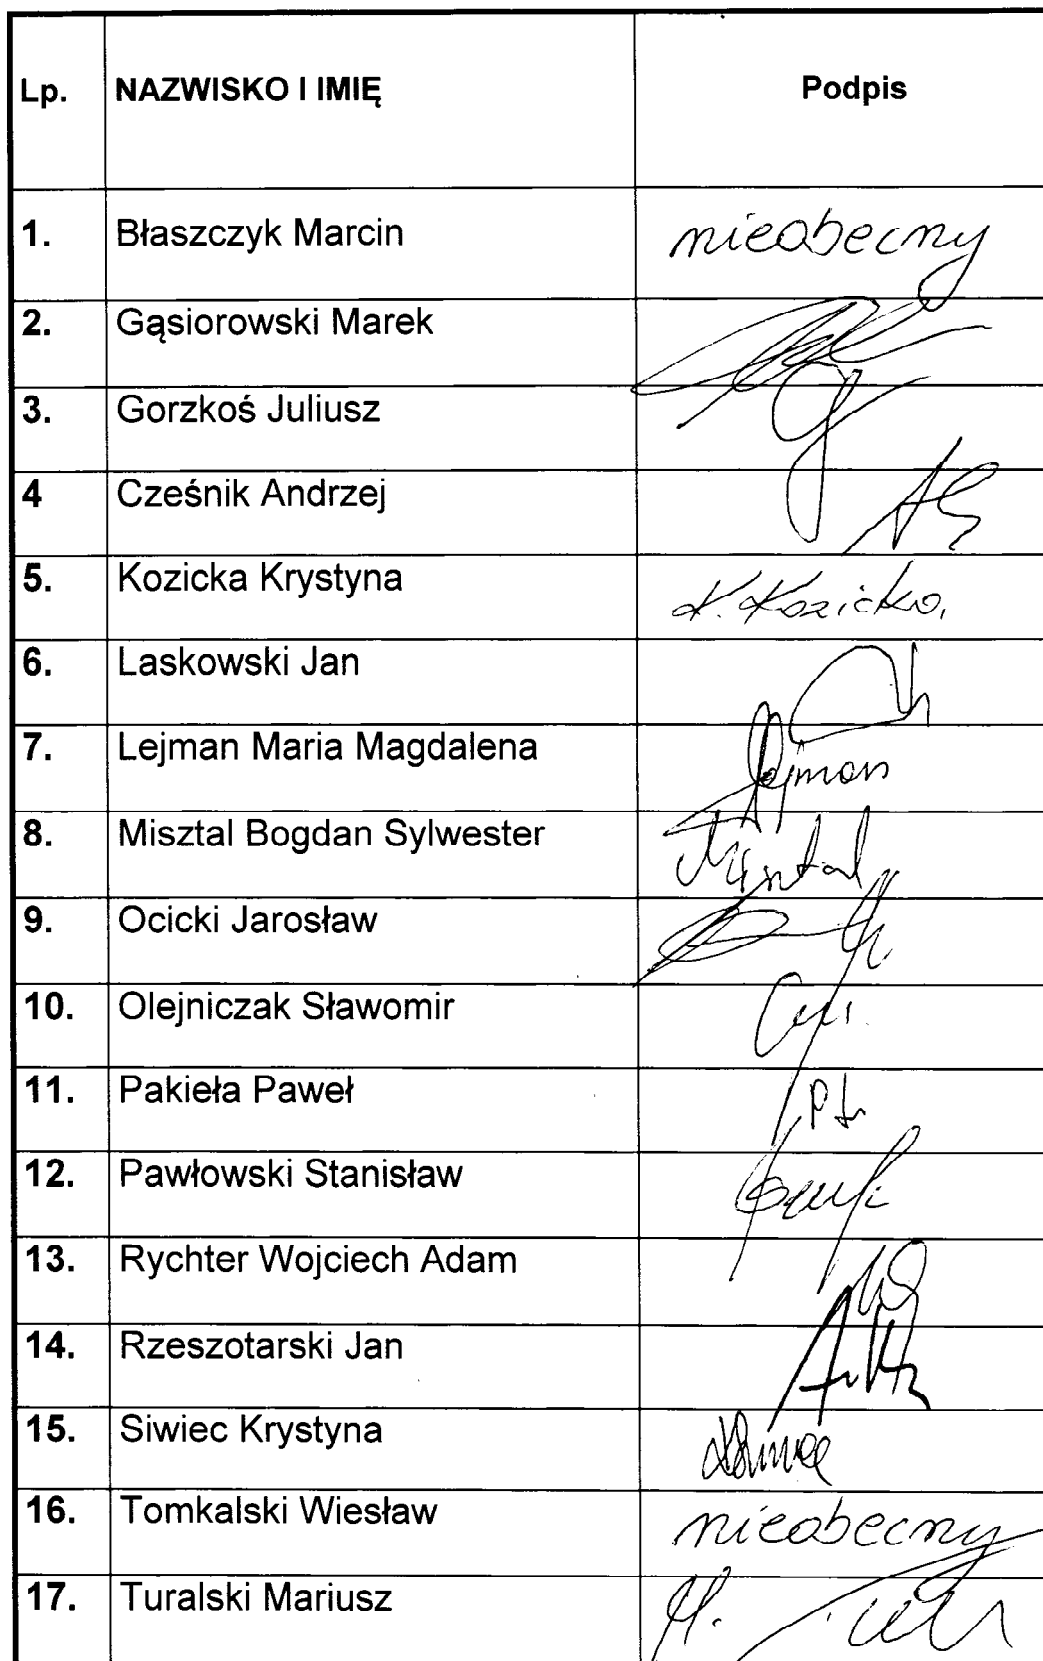 Lp. NAZWISKO I IMIĘ Podpis
1. Błaszczyk Marcin nieobecny
2. Gąsiorowski Marek
3. Gorzkoś Juliusz
4 Cześnik Andrzej
5. Kozicka Krystyna K. Kozicka
6. Laskowski Jan
7. Lejman Maria Magdalena Lejman
8. Misztal Bogdan Sylwester Misztal
9. Ocicki Jarosław
10. Olejniczak Sławomir
11. Pakieła Paweł
12. Pawłowski Stanisław
13. Rychter Wojciech Adam
14. Rzeszotarski Jan
15. Siwiec Krystyna
16. Tomkalski Wiesław nieobecny
17. Turalski Mariusz